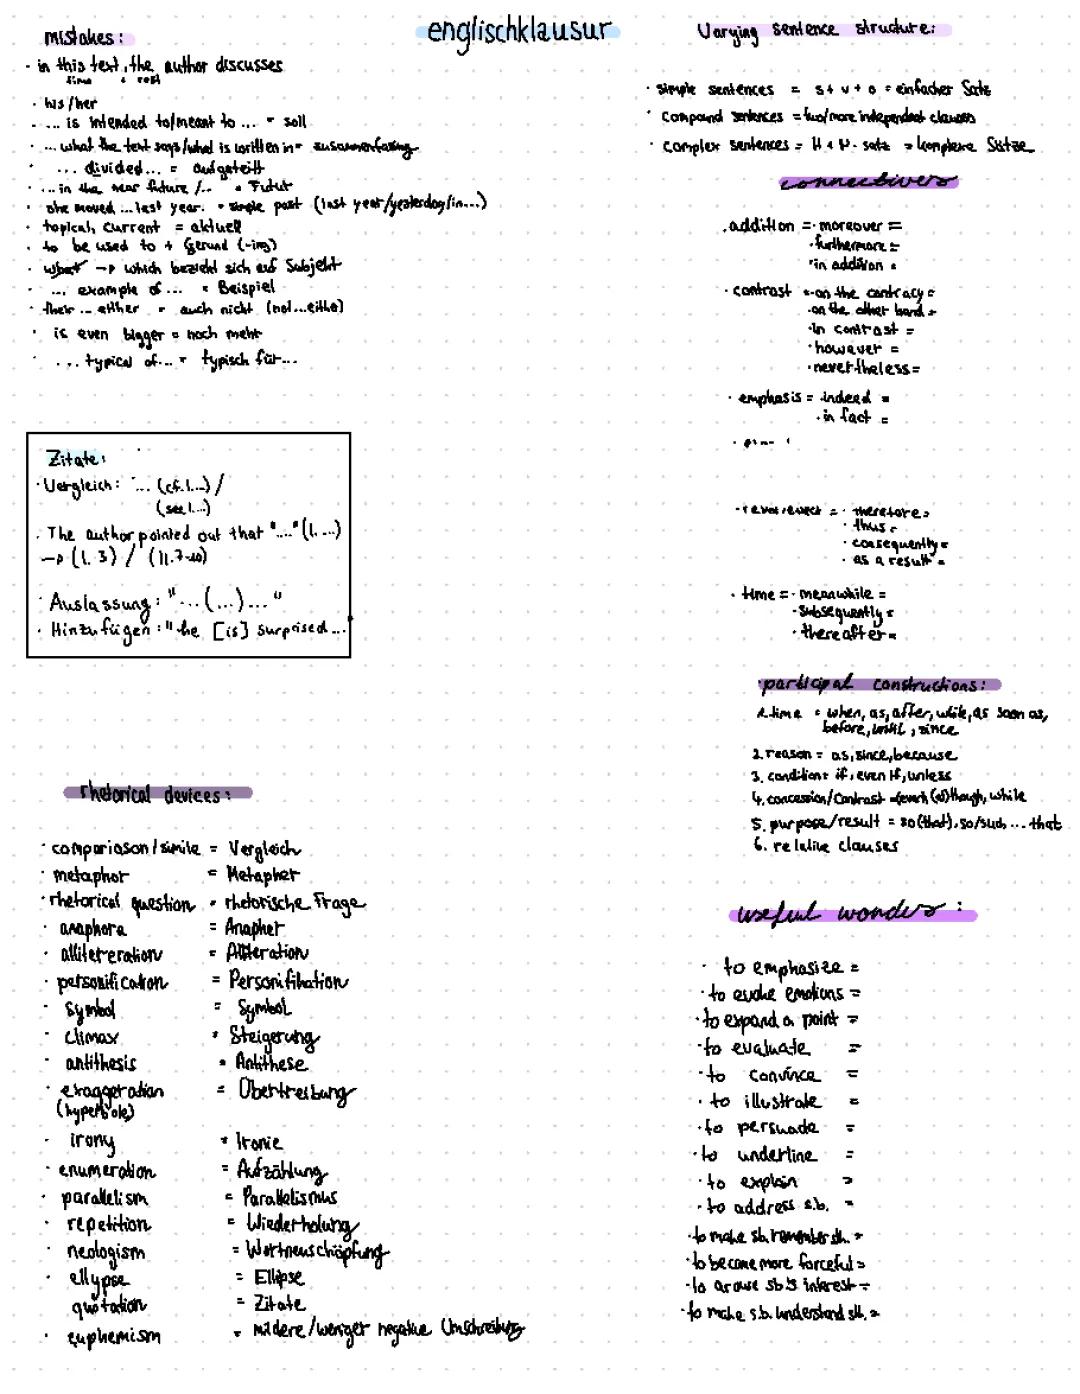 englischklausur
mistakes:
· in this text, the author discusses
time + rest
· his/her
· ... is intended to/meant to ... = soll
· ... what the text says/what is written in = zusammenfassung
... divided ... = aufgeteilt
· ... in the near future /.. = Futur
· she moved ... last year. = simple past (last year/yesterday/in...)
· topical, current = aktuell
· to be used to + Gerund (-ing)
· what → which bezieht sich auf Subjekt
· ... example of ... = Beispiel
· their ... either = auch nicht (not...either)
· is even bigger = noch mehr
· ... typical of ... = typisch für...
Zitate:
· Vergleich: "... (cf. l...) /
(see l...)
· The author pointed out that "..." (l. ...)
→ (l. 3) / (ll. 7-10)
· Auslassung: "...(...)..."
· Hinzufügen: "he [is] surprised...
rhetorical devices:
· compariason/simile = Vergleich
· metaphor = Metapher
· rhetorical question = rhetorische Frage
· anaphora = Anapher
· allitereration = Alliteration
· personification = Personifikation
· symbol = Symbol
· climax = Steigerung
· antithesis = Antithese
· exaggeration = Übertreibung
(hyperbole)
· irony = Ironie
· enumeration = Aufzählung
· parallelism = Parallelismus
· repetition = Wiederholung
· neologism = Wortneuschöpfung
· ellypse = Ellipse
quotation = Zitate
· euphemism = mildere/weniger negative Umschreibung
Varying sentence structure:
· simple sentences = s + v + o = einfacher Satz
· compound sentences = two/more independent clauses
· complex sentences = H + N-satz = komplexe Sätze
connectivers
· addition = · moreover =
· furthermore =
· in addition =
· contrast = · on the contracy =
· on the other hand =
· in contrast =
· however =
· nevertheless =
· emphasis = · indeed =
· in fact =
· therefore =
· thus =
· consequently =
· as a result =
· time = · meanwhile =
· subsequently =
· thereafter =
· participal constructions:
1. time = when, as, after, while, as soon as,
before, until, since
2. reason = as, since, because
3. condition = if, even if, unless
4. concession/contrast = (even) (al)though, while
5. purpose/result = so (that), so/such ... that
6. relative clauses
useful wonders:
· to emphasize =
· to evoke emotions =
· to expand a point =
· to evaluate =
· to convince =
· to illustrate =
· to persuade =
· to underline =
· to explain =
· to address s.b. =
· to make sb. remember sth. =
· to become more forceful =
· to arouse sb's interest =
· to make s.b. understand sth. =